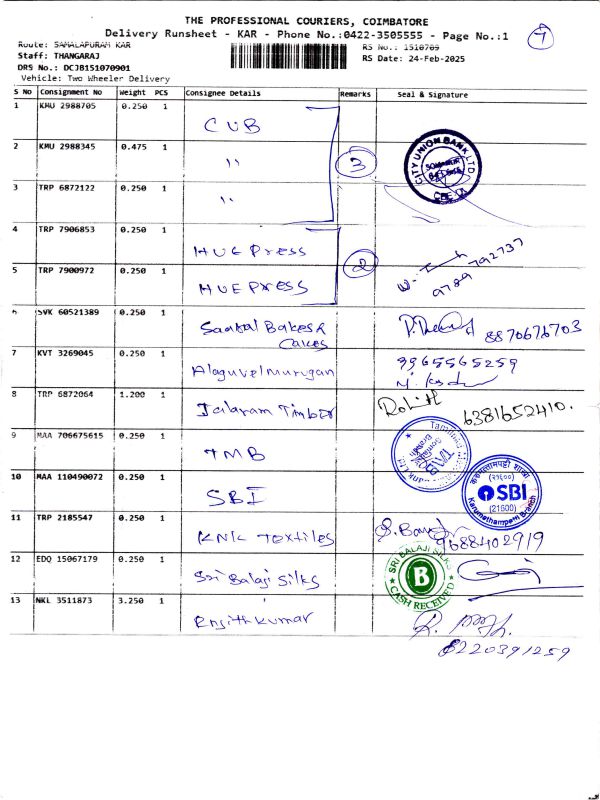 THE PROFESSIONAL COURIERS, COIMBATORE
Delivery Runsheet - KAR - Phone No.:0422-3505555 - Page No.:1
Route: SAMALAPURAM KAR
RS No.: 1510709
Staff: THANGARAJ
RS Date: 24-Feb-2025
DRS No.: DCJB151070901
Vehicle: Two Wheeler Delivery
S No Consignment No Weight PCS Consignee Details Remarks Seal & Signature
1 KMU 2988705 0.250 1 CUB
2 KMU 2988345 0.475 1 " 3 CITY UNION BANK LTD.
3 TRP 6872122 0.250 1 "
4 TRP 7906853 0.250 1 HUE Press
2 9789792737
5 TRP 7900972 0.250 1 HUE Press
6 SVK 60521389 0.250 1 Saaral Bakes & Cakes 8870676703
7 KVT 3269045 0.250 1 Alaguvelmurugan 9965565259
8 TRP 6872064 1.200 1 Jalaram Timber Rohith 6381652410.
9 MAA 706675615 0.250 1 TMB Tamilnad TMB
10 MAA 110490072 0.250 1 SBI SBI (21600) Karumathampatti Branch
11 TRP 2185547 0.250 1 KNK Textiles 9688402919
12 EDQ 15067179 0.250 1 Sri Balaji Silks SRI BALAJI SILKS B CASH RECEIVED
13 NKL 3511873 3.250 1 Enjithkumar
8220391259